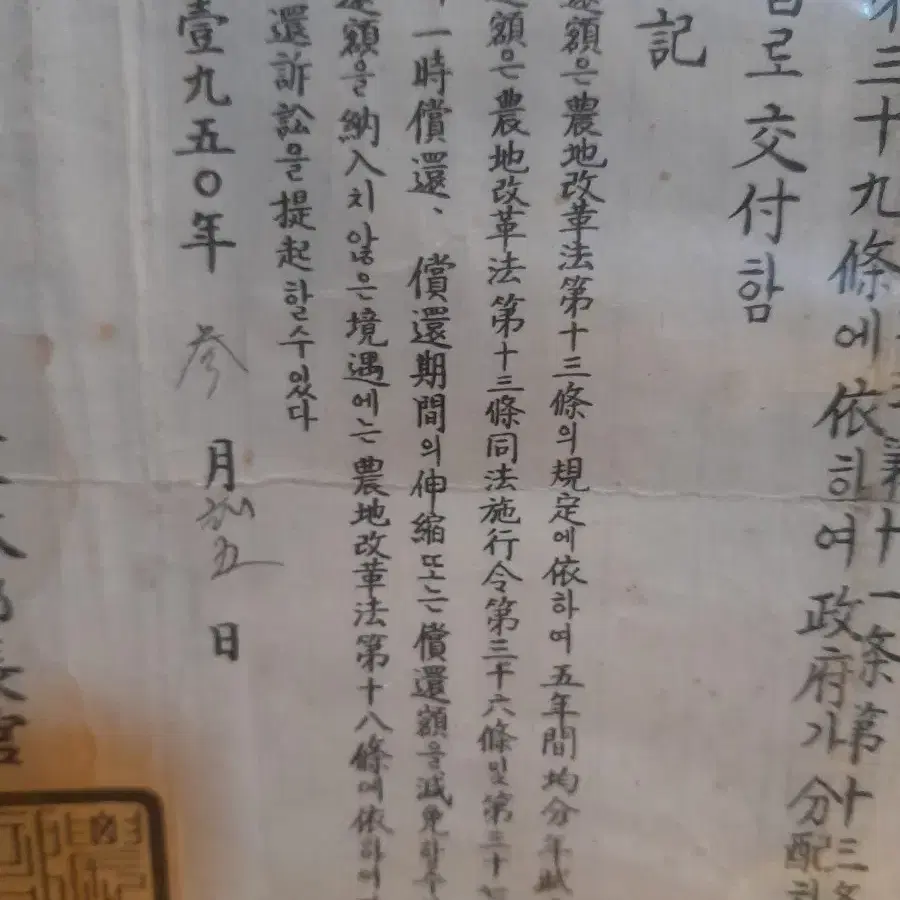 三十九條에依하여政府가分配
로交付함
記
額은農地改革法第十三條의規定에依하여五年間均分年賦
額은農地改革法第十三條同法施行令第三十六條및第三十
一時償還、償還期間의伸縮또는償還額을減免할수
額을納入치않은境遇에는農地改革法第十八條에依하여
還訴訟을提起할수있다
壹九五〇年 參月 五日